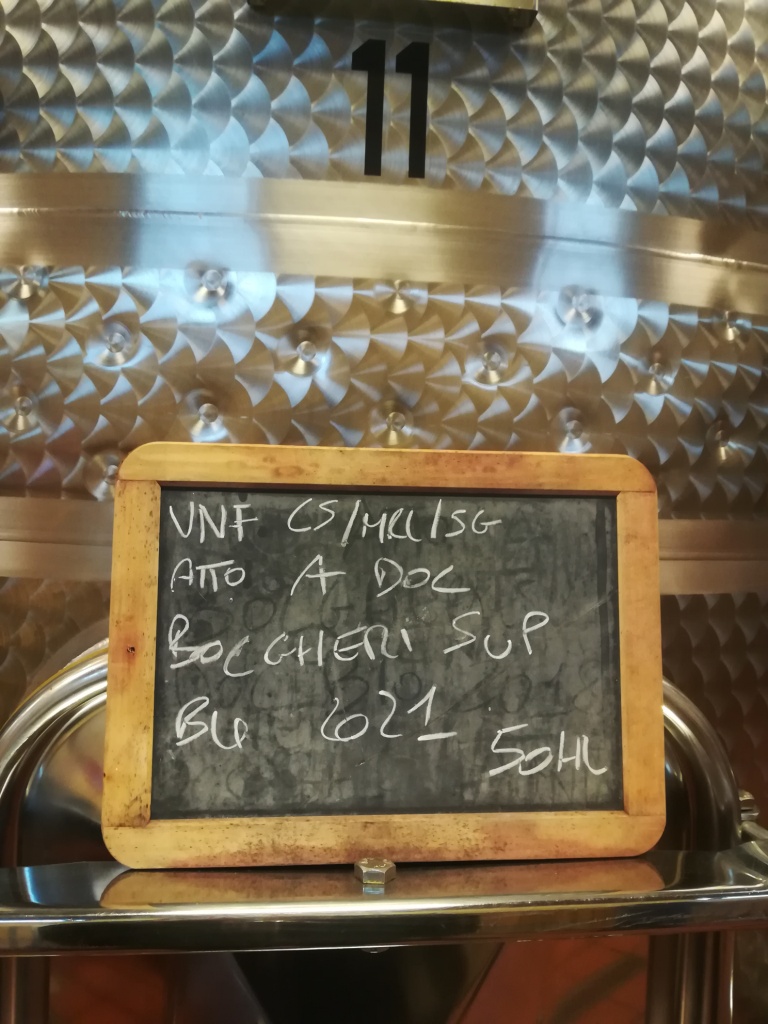 11
VNF CS/MRL/SG
ATTO A DOC
BOLGHERI SUP
621
50HL